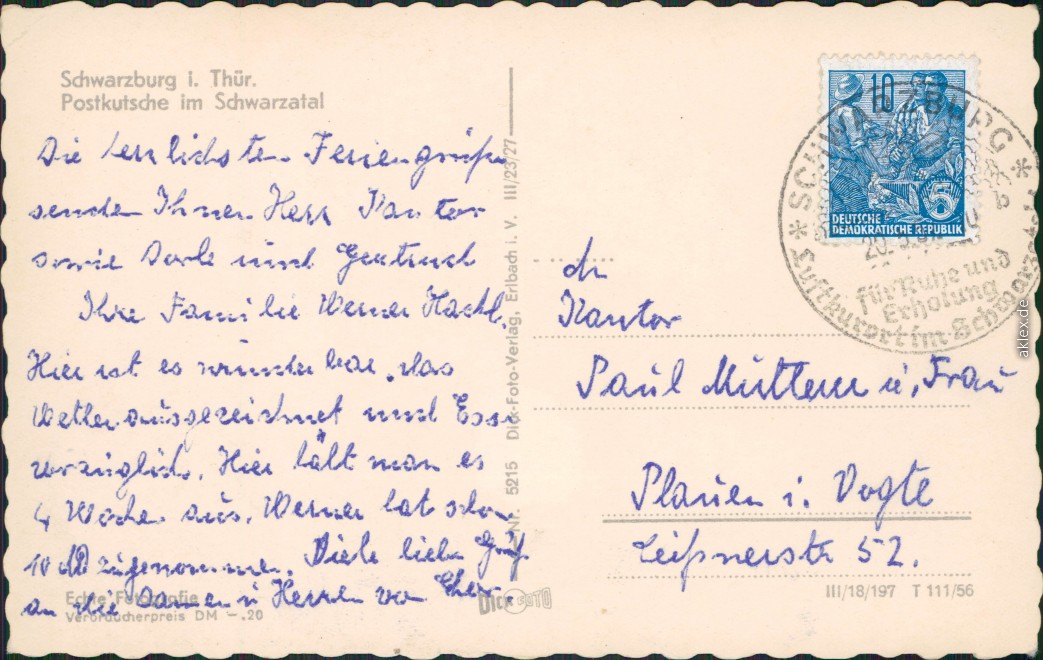 Schwarzburg i. Thür.
Postkutsche im Schwarzatal
Die herzlichsten Feriengrüße
senden Ihnen Herr Kantor
sowie und
Ihre Familie Werner Hackl.
Hier ist es wunderbar, das
Wetter ausgezeichnet und Essen
vorzüglich. Hier hält man es
4 Wochen aus. Werner hat schon
10 zugenommen. Viele liebe Grüße
an die Damen u Herren vom
Echte Fotografie
Verbraucherpreis DM –.20
5215 Dick-Foto-Verlag, Erlbach i. V. III/23/27
DICK FOTO
10
5
DEUTSCHE
DEMOKRATISCHE REPUBLIK
* SCHWARZBURG *
für Ruhe und
Erholung
Luftkurort im Schwarzatal
Kantor
Paul u. Frau
Plauen i. Vogtl
Leißnerstr 52.
III/18/197 T 111/56
aklex.de